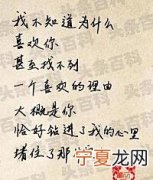 我不知道为什么
喜欢你
甚至找不到
一个喜欢的理由
大概是你
恰好钻进了我的心里
堵住了那
宁夏龙网